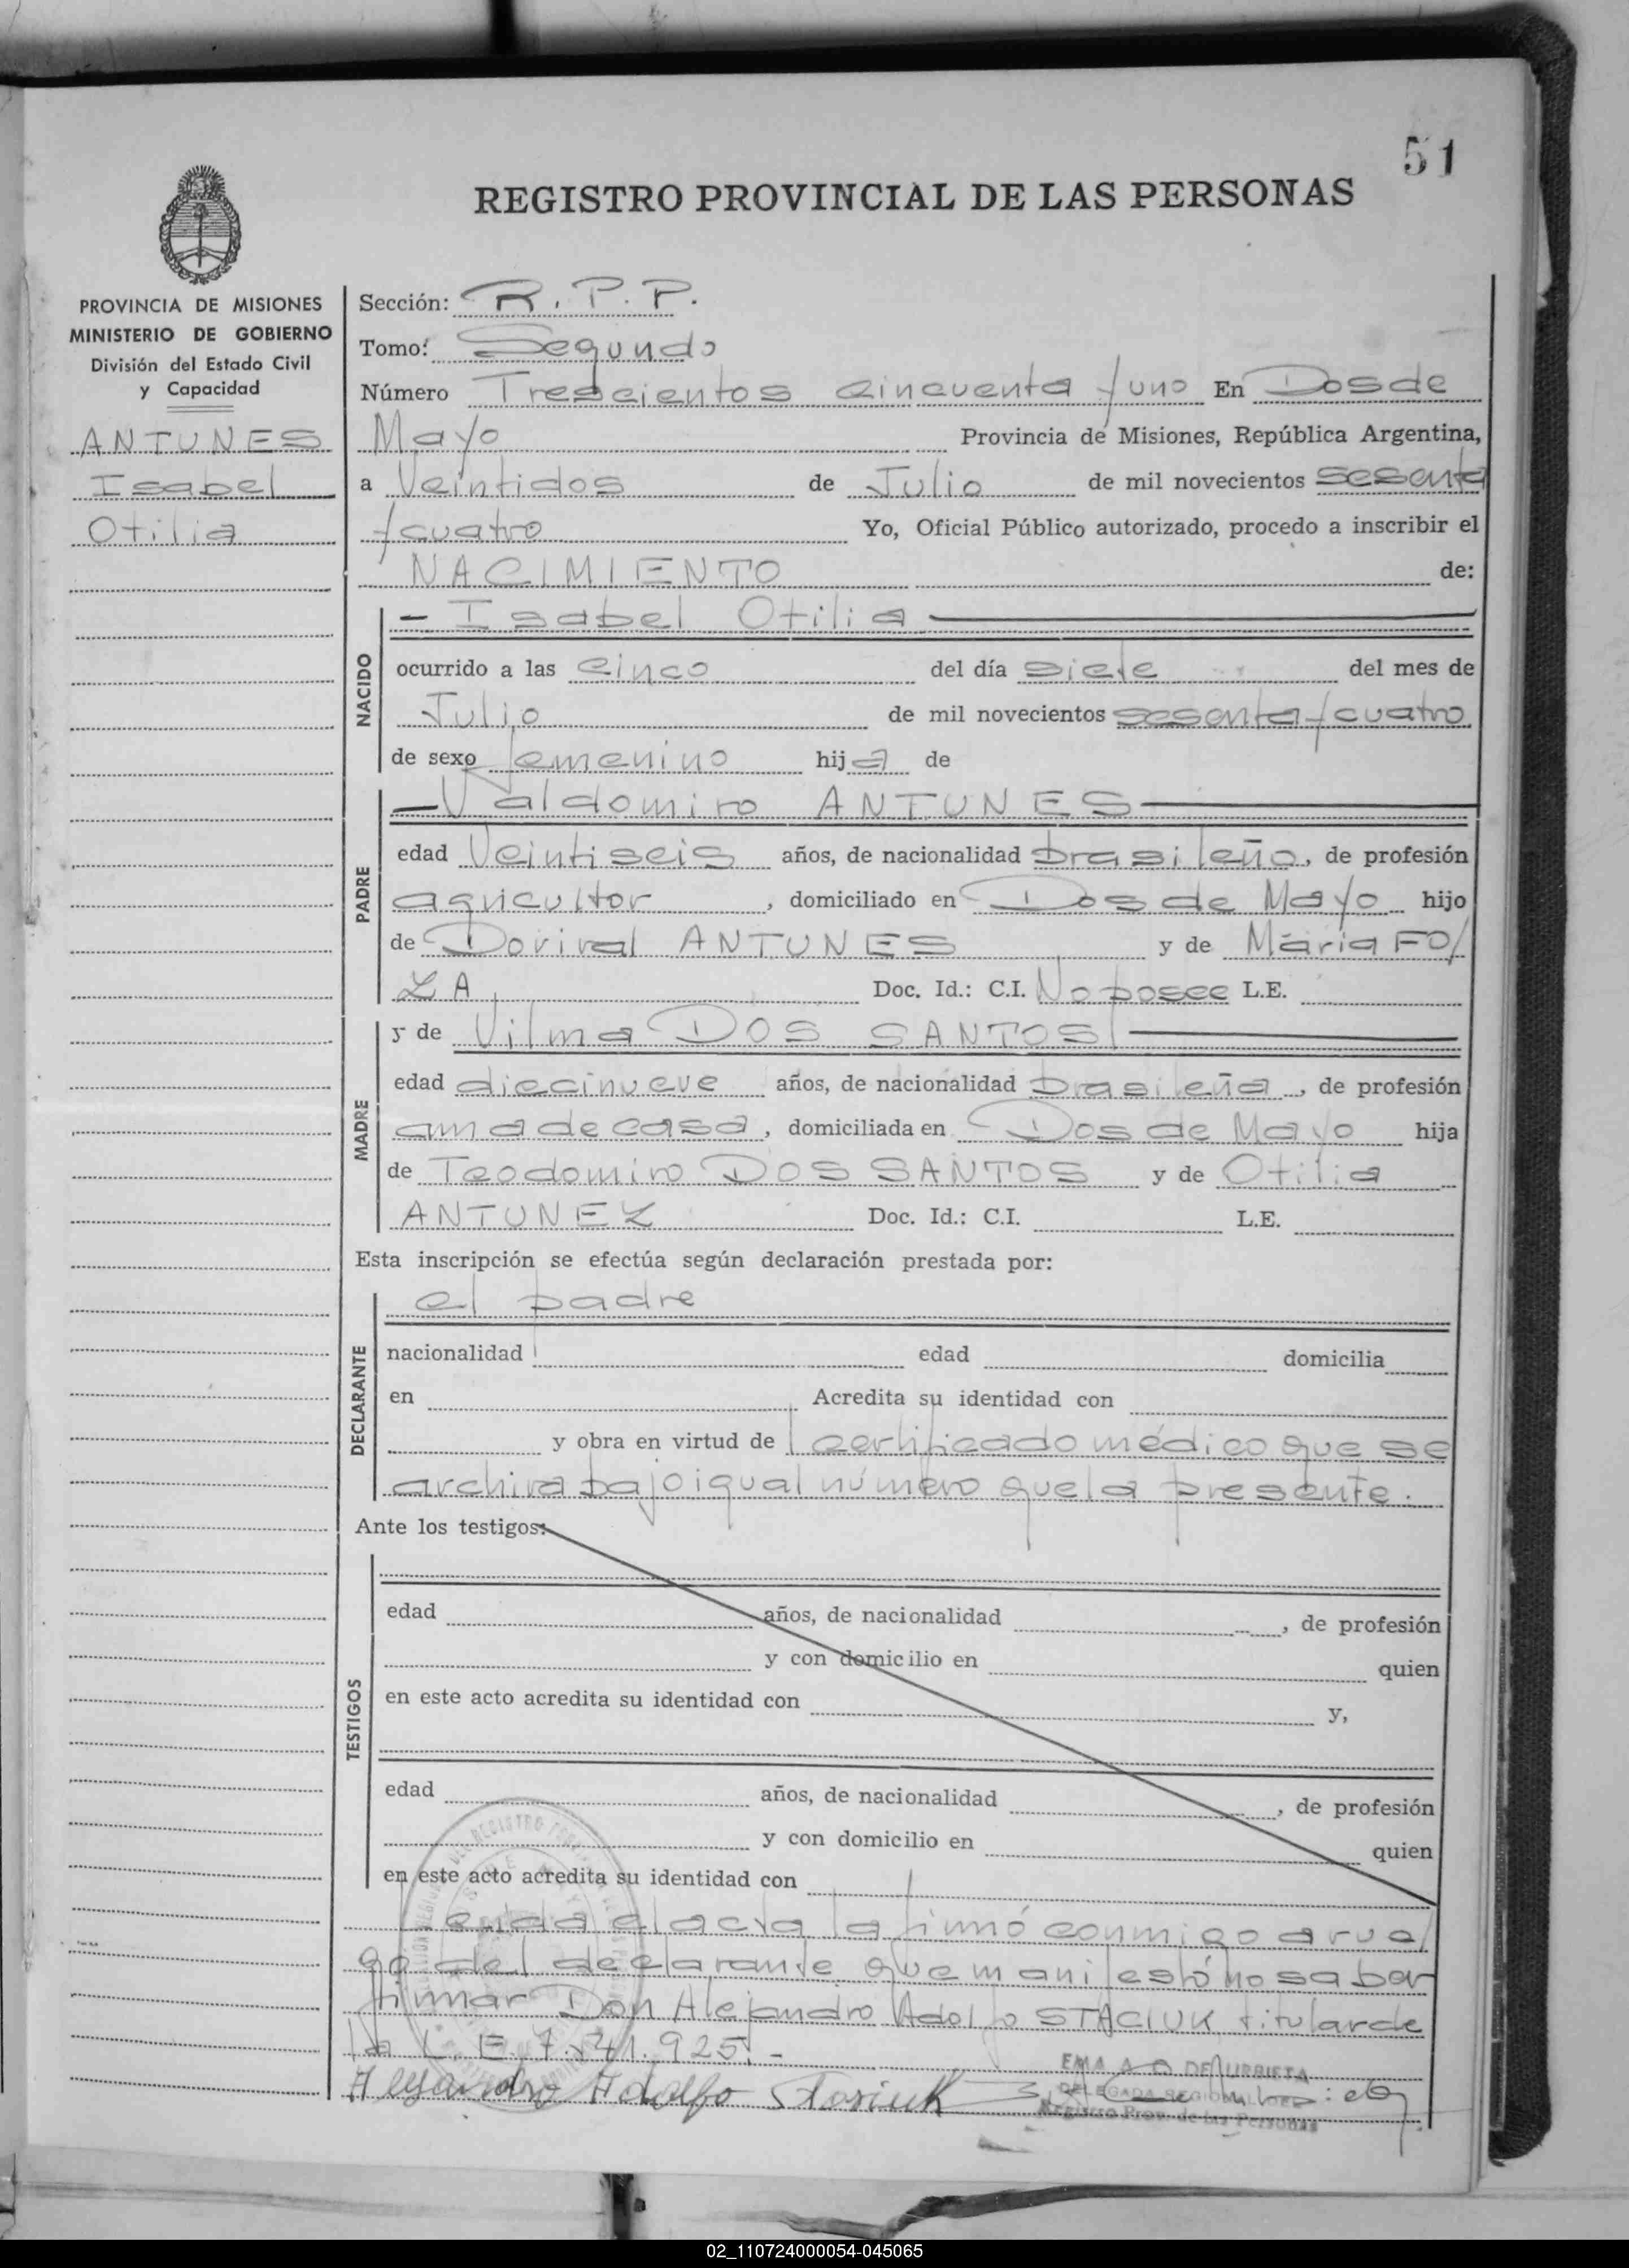 51
REGISTRO PROVINCIAL DE LAS PERSONAS
PROVINCIA DE MISIONES
MINISTERIO DE GOBIERNO
División del Estado Civil
y Capacidad
ANTUNES
Isabel
Otilia
Sección: R. P. P.
Tomo: Segundo
Número Trescientos cincuenta y uno En Dos de
Mayo Provincia de Misiones, República Argentina,
a Veintidos de Julio de mil novecientos sesenta
y cuatro Yo, Oficial Público autorizado, procedo a inscribir el
NACIMIENTO de:
NACIDO
- Isabel Otilia
ocurrido a las cinco del día siete del mes de
Julio de mil novecientos sesenta y cuatro
de sexo femenino hija de
PADRE
- Valdomiro ANTUNES
edad Veintiseis años, de nacionalidad brasileño, de profesión
agricultor, domiciliado en Dos de Mayo hijo
de Dorival ANTUNES y de Maria FO/
ZA Doc. Id.: C.I. No posee L.E.
MADRE
y de Vilma DOS SANTOS
edad diecinueve años, de nacionalidad brasileña, de profesión
ama de casa, domiciliada en Dos de Mayo hija
de Teodomiro DOS SANTOS y de Otilia
ANTUNEZ Doc. Id.: C.I. L.E.
Esta inscripción se efectúa según declaración prestada por:
DECLARANTE
el padre
nacionalidad edad domicilia
en Acredita su identidad con
y obra en virtud de certificado médico que se
archiva bajo igual número que la presente.
Ante los testigos:
TESTIGOS
edad años, de nacionalidad , de profesión
y con domicilio en quien
en este acto acredita su identidad con y,
edad años, de nacionalidad , de profesión
y con domicilio en quien
en este acto acredita su identidad con
Leida el acta la firmó conmigo a rue/
go del declarante que manifestó no saber
firmar Don Alejandro Adolfo STACIUK titular de
la L.E. 7.541.925.-
Alejandro Adolfo Stasiuk
EMA A O DE URRIETA
DELEGADA REGIONAL
Registro Prov. de las Personas
02_110724000054-045065